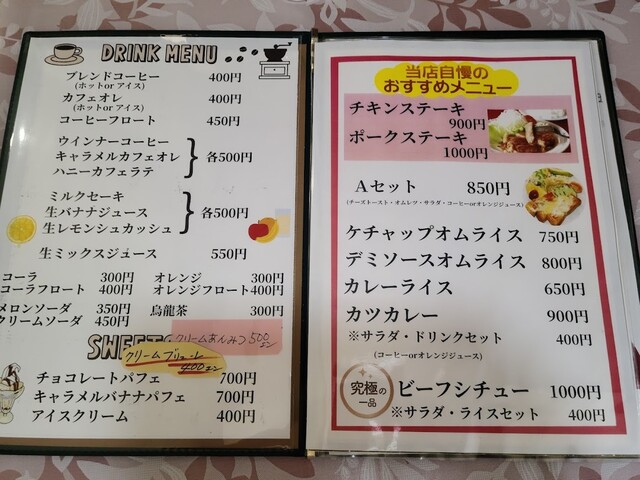 DRINK MENU
ブレンドコーヒー 400円
(ホットor アイス)
カフェオレ 400円
(ホットor アイス)
コーヒーフロート 450円
ウインナーコーヒー
キャラメルカフェオレ 各500円
ハニーカフェラテ
ミルクセーキ
生バナナジュース 各500円
生レモンシュカッシュ
生ミックスジュース 550円
コーラ 300円 オレンジ 300円
コーラフロート 400円 オレンジフロート400円
メロンソーダ 350円 烏龍茶 300円
クリームソーダ 450円
クリームあんみつ 500エン
SWEETS
クリームブリュレ
400エン
チョコレートパフェ 700円
キャラメルバナナパフェ 700円
アイスクリーム 400円
当店自慢の
おすすめメニュー
チキンステーキ
900円
ポークステーキ
1000円
Aセット 850円
(チーズトースト・オムレツ・サラダ・コーヒーorオレンジジュース)
ケチャップオムライス 750円
デミソースオムライス 800円
カレーライス 650円
カツカレー 900円
※サラダ・ドリンクセット 400円
(コーヒーorオレンジジュース)
究極の
一品
ビーフシチュー 1000円
※サラダ・ライスセット 400円